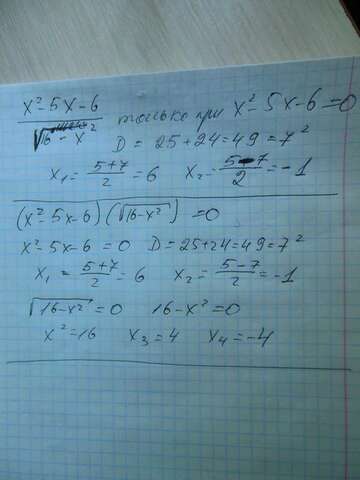 x²-5x-6 / √16-x² только при x²-5x-6=0
D = 25+24=49=7²
x₁ = 5+7/2 = 6 x₂ = 5-7/2 = -1
(x²-5x-6)(√16-x²) =0
x²-5x-6=0 D=25+24=49=7²
x₁ = 5+7/2 = 6 x₂ = 5-7/2 = -1
√16-x² =0 16-x²=0
x²=16 x₃=4 x₄=-4